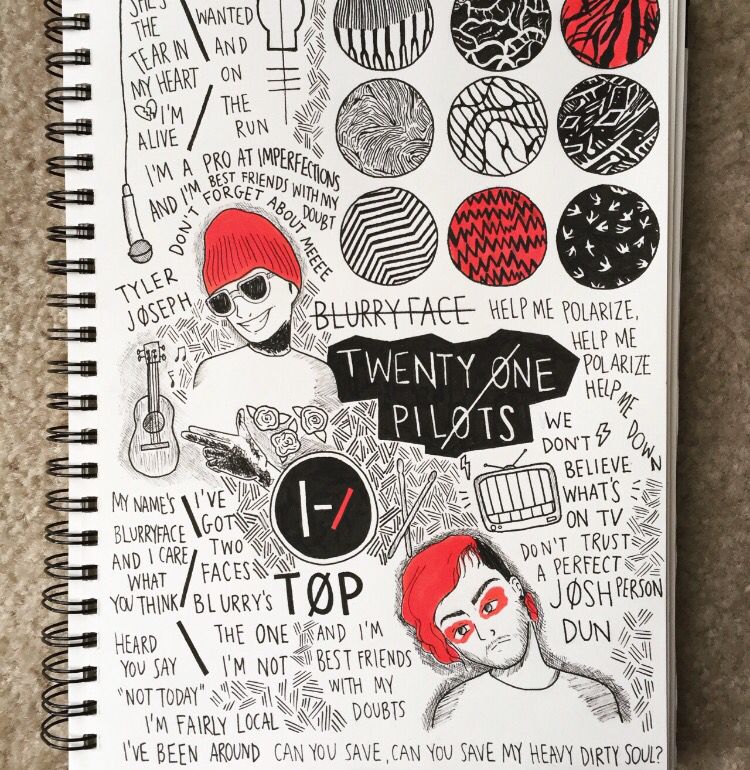 SHE'S
THE
TEAR IN
MY HEART
I'M
ALIVE
WANTED
AND
ON
THE
RUN
I'M A PRO AT IMPERFECTIONS
AND I'M BEST FRIENDS WITH MY
DOUBT
DON'T FORGET ABOUT MEEEE
TYLER
JØSEPH
BLURRYFACE
HELP ME POLARIZE,
HELP ME
POLARIZE
HELP ME DOWN
TWENTY ØNE
PILØTS
WE
DON'T
BELIEVE
WHAT'S
ON TV
DON'T TRUST
A PERFECT
PERSON
JØSH
DUN
MY NAME'S
BLURRYFACE
AND I CARE
WHAT
YOU THINK
I'VE
GOT
TWO
FACES
BLURRY'S
THE ONE
I'M NOT
|-/
TØP
HEARD
YOU SAY
"NOT TODAY"
AND I'M
BEST FRIENDS
WITH MY
DOUBTS
I'M FAIRLY LOCAL
I'VE BEEN AROUND
CAN YOU SAVE, CAN YOU SAVE MY HEAVY DIRTY SOUL?